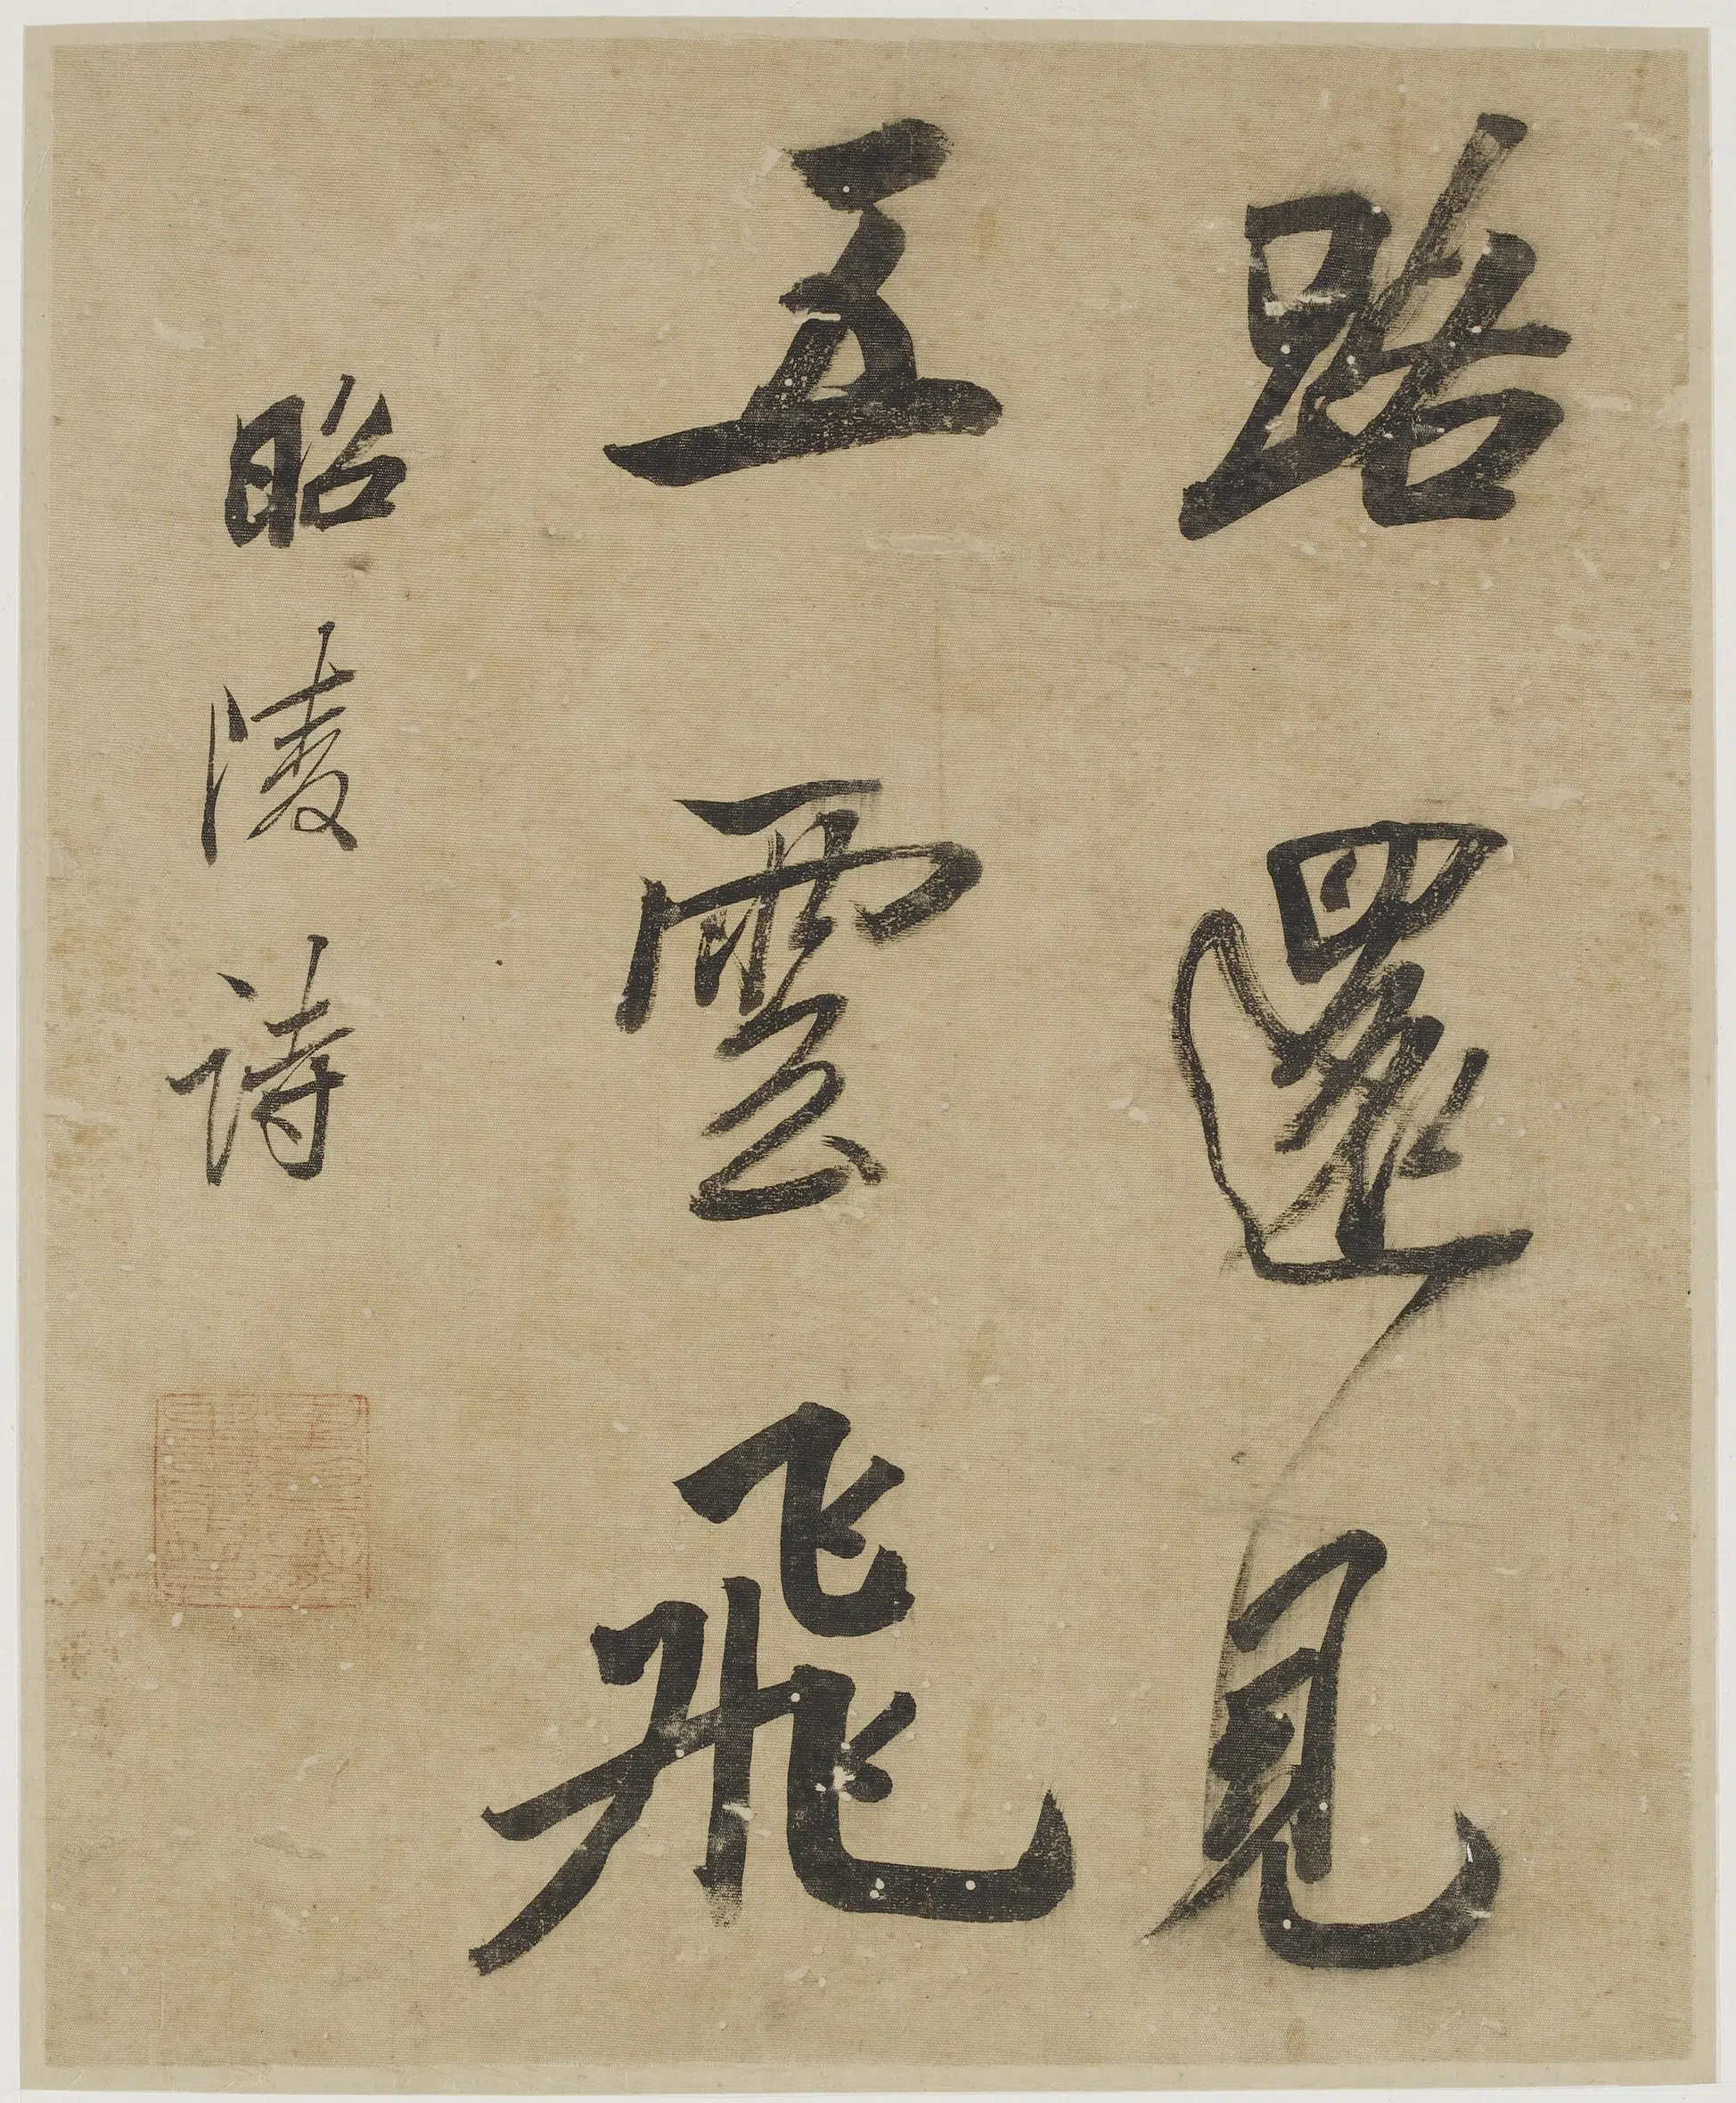 路還見
五雲飛
昭陵詩